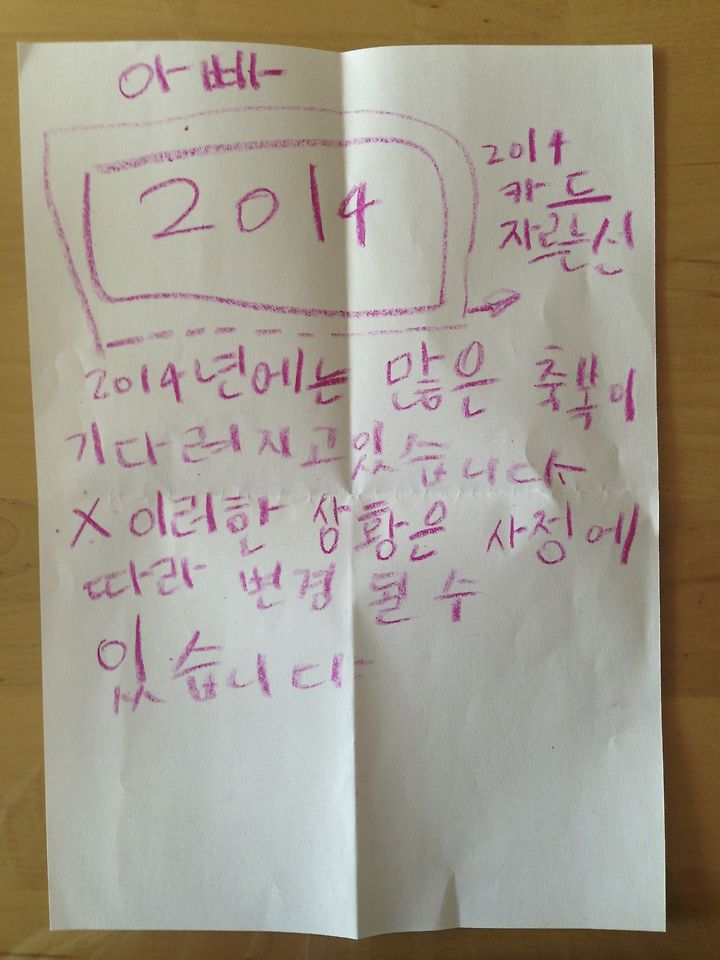 아빠
2014
2014
카드
자르는선
2014년에는 많은 축복이
기다려지고있습니다
X 이러한 상황은 사정에
따라 변경 될 수
있습니다